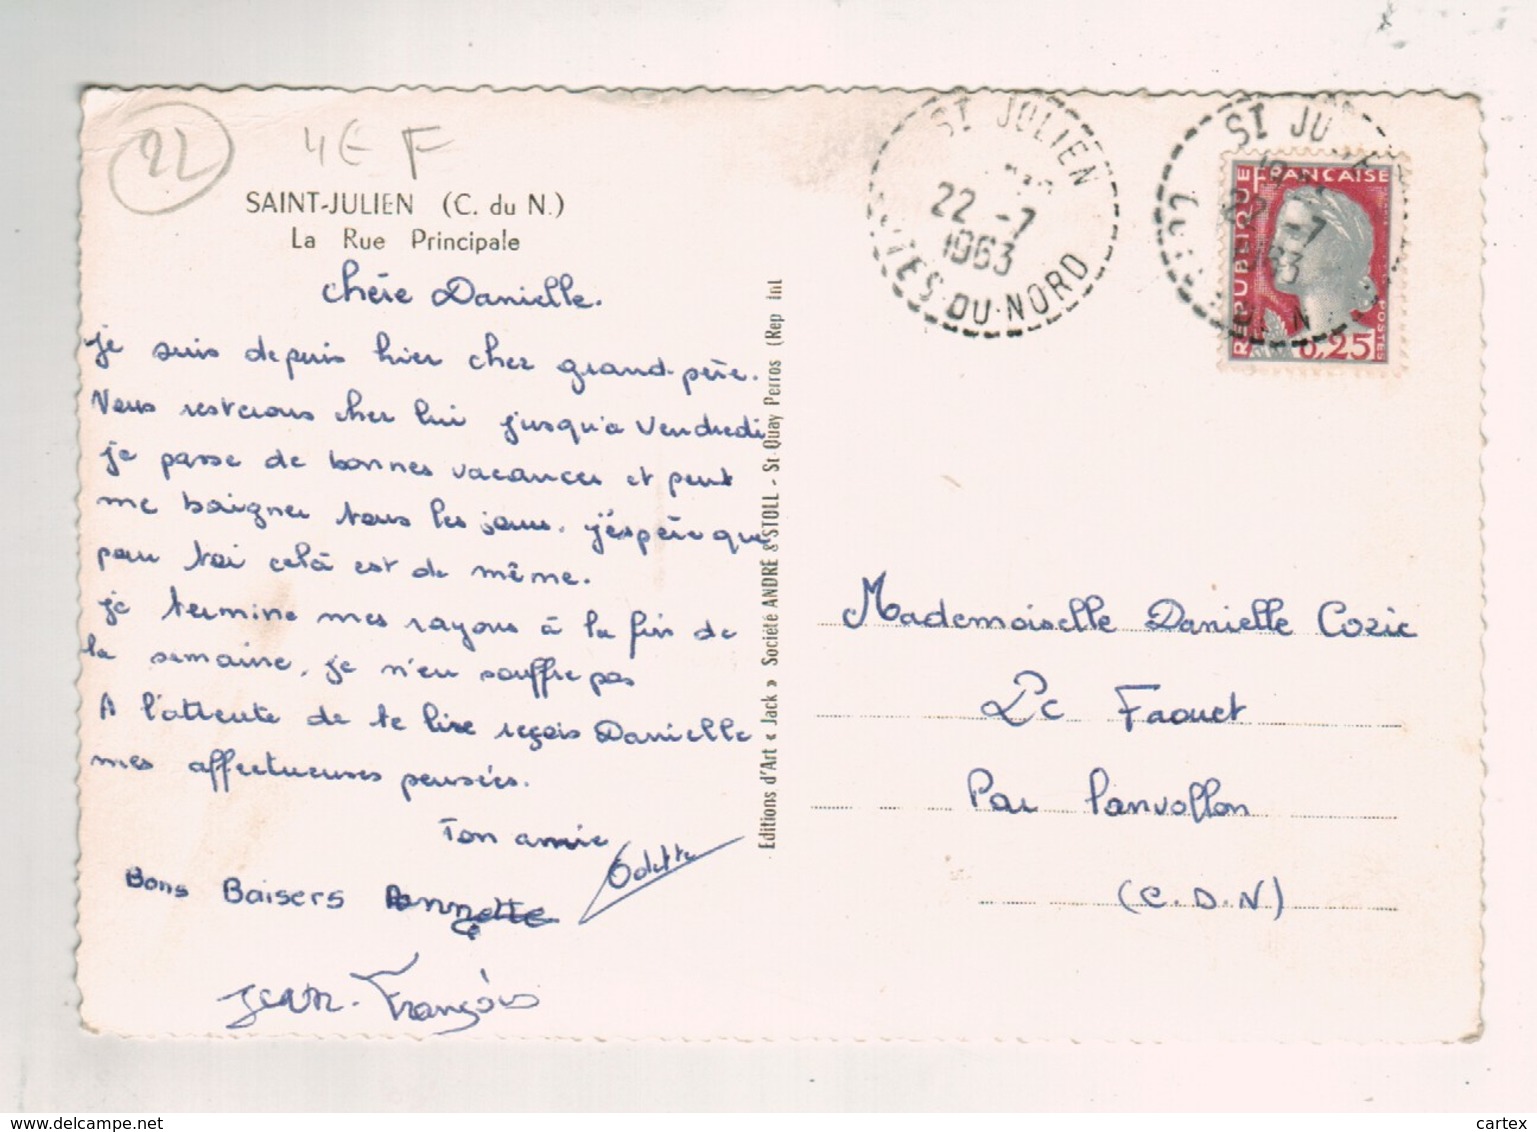 22
4€ F
SAINT-JULIEN (C. du N.)
La Rue Principale
chère Danielle.
je suis depuis hier chez grand-père.
Nous resterons chez lui jusqu'à vendredi
je passe de bonnes vacances et peut
me baigner tous les jours. j'éspère que
pour toi celà est de même.
je termine mes rayons à la fin de
la semaine, je n'en souffre pas
A l'attente de te lire reçois Danielle
mes affectueuses pensées.
Ton amie
Odette
Bons Baisers Annette
Jean-François
Editions d'Art « Jack » Société ANDRÉ & STOLL - St-Quay Perros (Rep Int
ST JULIEN
22 -7
1963
COTES-DU-NORD
ST JULIEN
22 -7
1963
REPUBLIQUE FRANÇAISE
POSTES
0,25
Mademoiselle Danielle Cozic
Le Faouet
Par Lanvollon
(C.D.N)
cartex